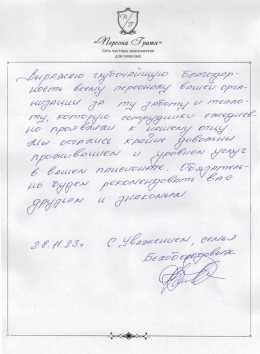 «Персона Грата»
Сеть частных пансионатов
для пожилых
Выражаю глубочайшую благодар-
ность всему персоналу вашей орга-
низации за ту заботу и тепло-
ту, которую сотрудники ежеднев-
но проявляли к нашему отцу.
Мы остались крайне довольны
проживанием и уровнем услуг
в вашем пансионате. Обязатель-
но будем рекомендовать Вас
друзьям и знакомым.
28.11.23г. С Уважением, семья
Безбородовых